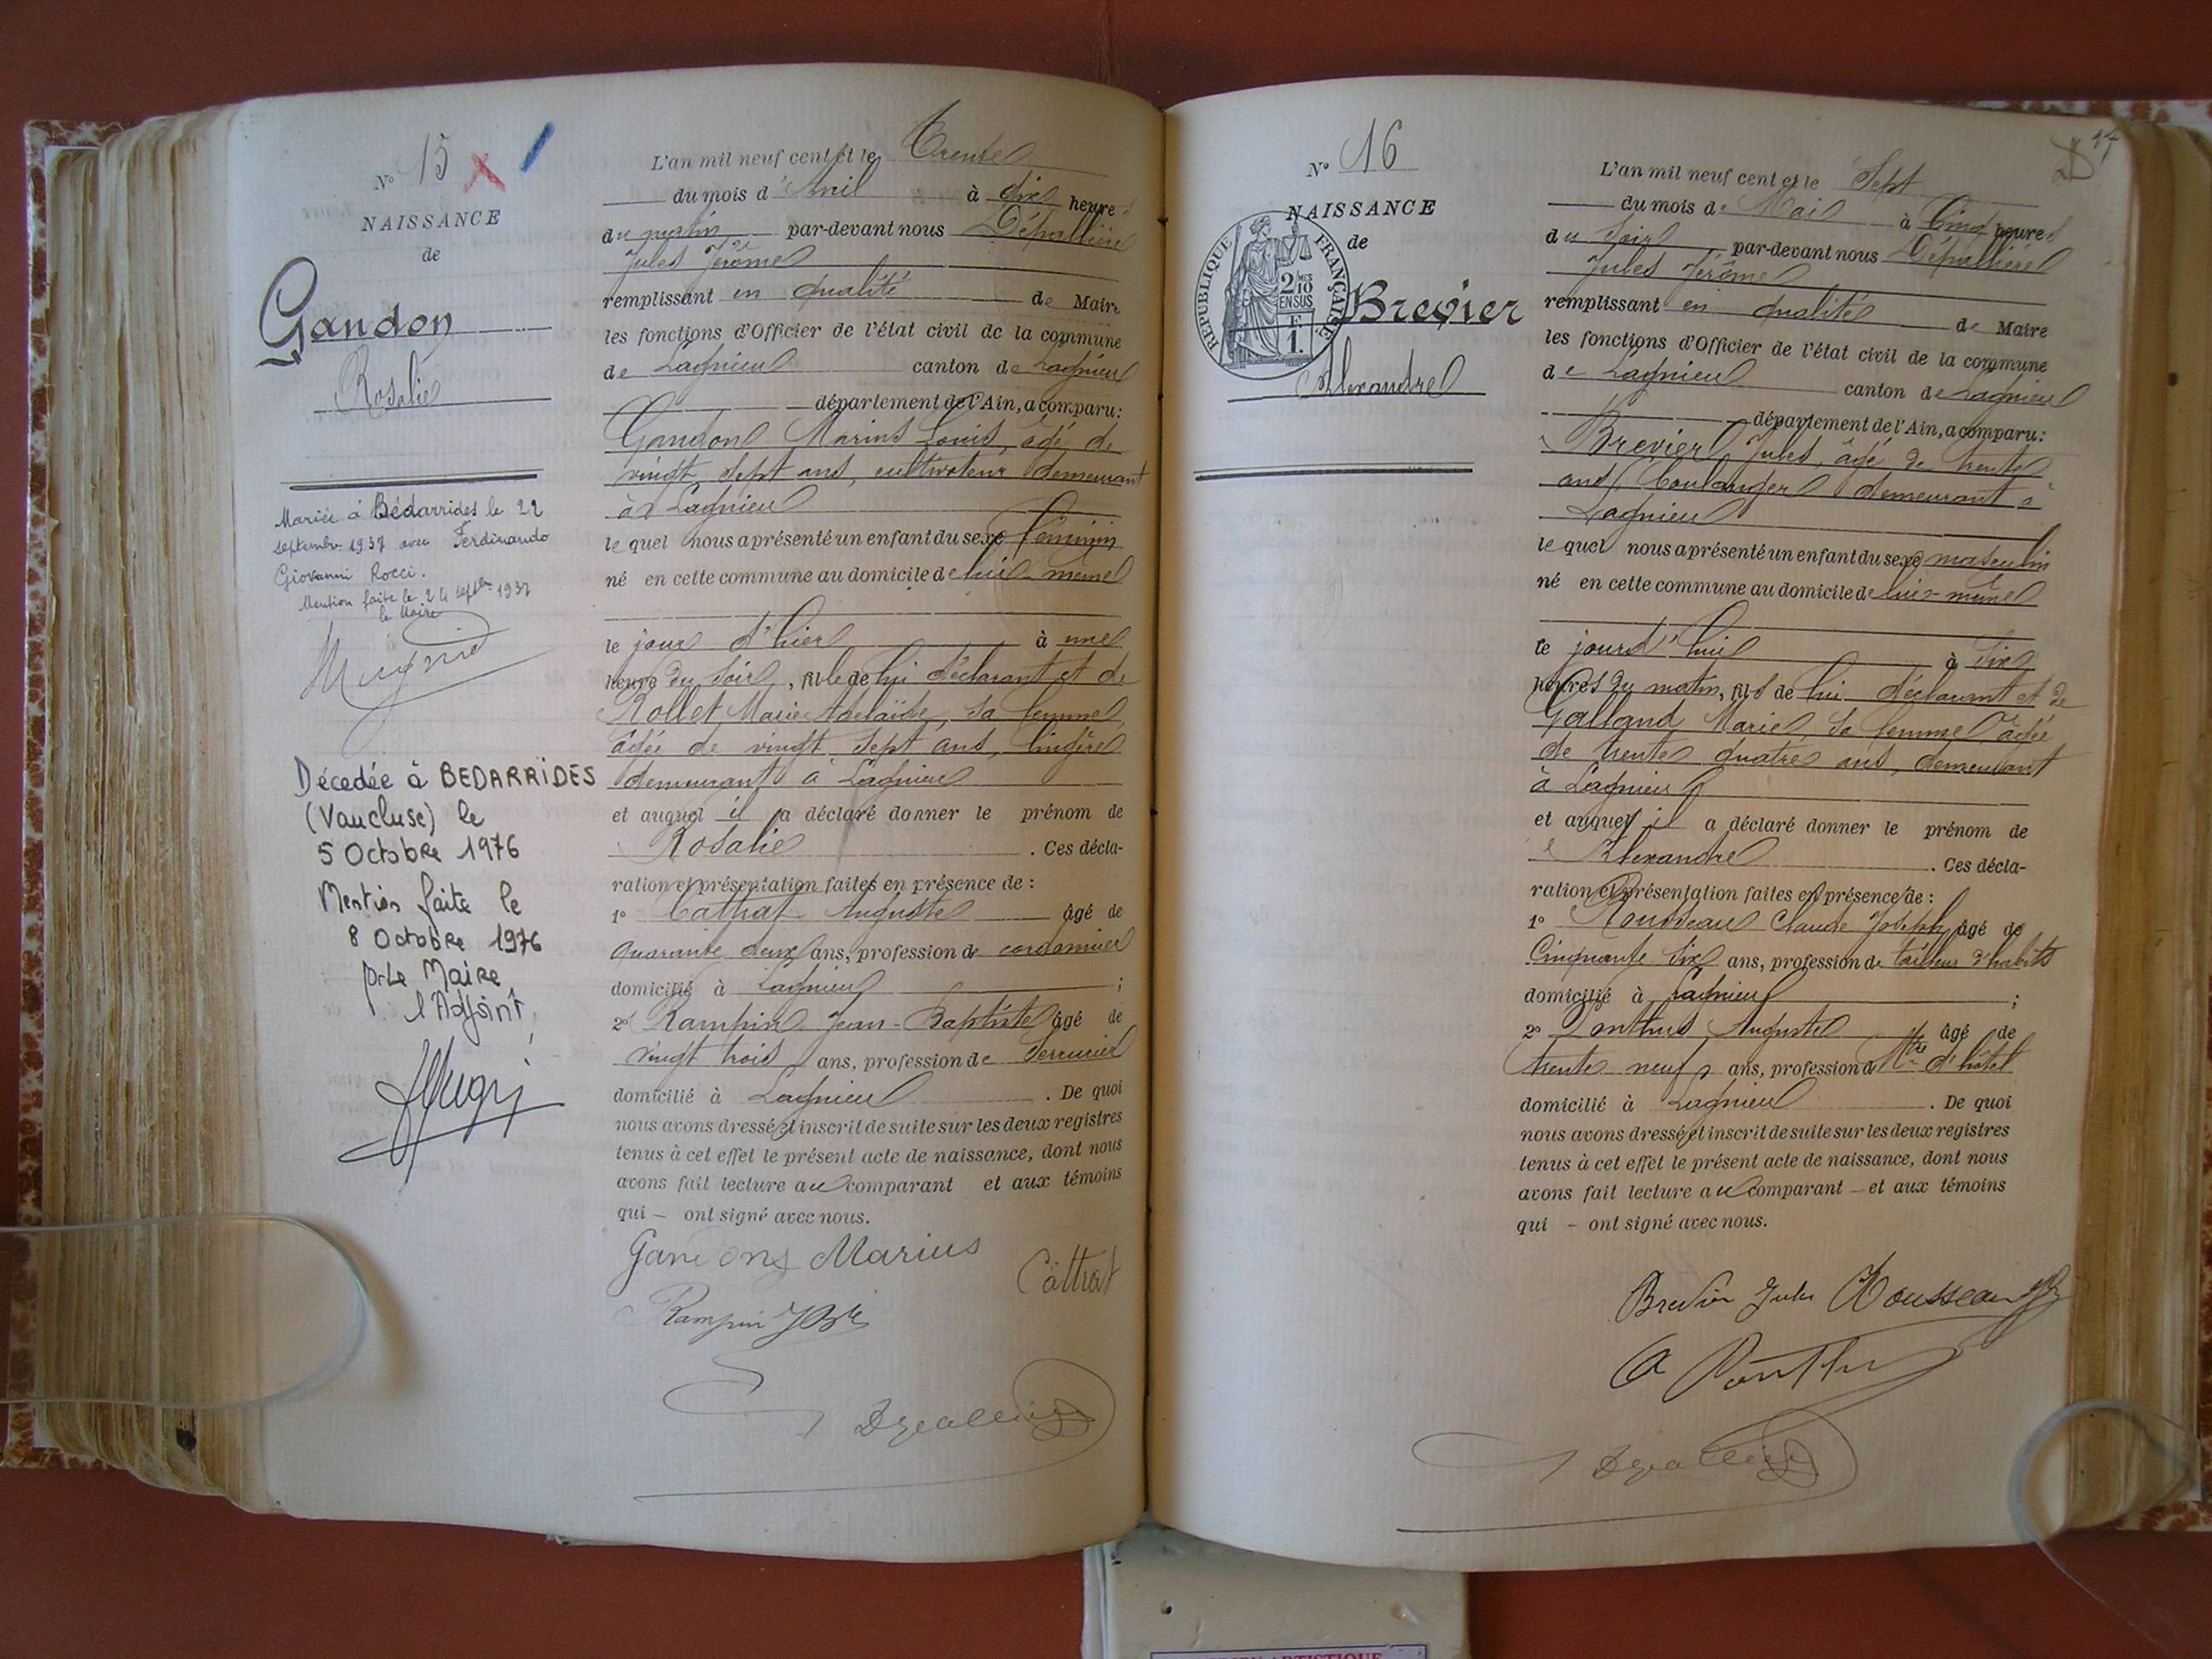 N° 15
NAISSANCE
de
Gandon
Rosalie
Mariée à Bédarrides le 22
septembre 1937 avec Ferdinando
Giovanni Rocci.
Mention faite le 24 septbre 1937
le Maire
Décedée à BEDARRIDES
(Vaucluse) le
5 Octobre 1976
Mention faite le
8 Octobre 1976
P. Le Maire,
l'Adjoint,
L'an mil neuf cent et le Trente
du mois d'Avril à dix heures
du matin par-devant nous Dépallière
Jules Jérôme
remplissant en qualité de Maire
les fonctions d'Officier de l'état civil de la commune
de Lagnieu canton de Lagnieu
département de l'Ain, a comparu:
Gandon Marius Louis, âgé de
vingt sept ans, cultivateur demeurant
à Lagnieu
le quel nous a présenté un enfant du sexe féminin
né en cette commune au domicile de lui-même
le jour d'hier à une
heure du soir, fille de lui déclarant et de
Rollet Marie Adelaïde, sa femme,
âgée de vingt sept ans, lingère
demeurant à Lagnieu
et auquel il a déclaré donner le prénom de
Rosalie. Ces décla-
ration et présentation faites en présence de:
1° Cattrat Auguste âgé de
quarante deux ans, profession de cordonnier
domicilié à Lagnieu;
2° Rampin Jean-Baptiste âgé de
vingt trois ans, profession de serrurier
domicilié à Lagnieu. De quoi
nous avons dressé et inscrit de suite sur les deux registres
tenus à cet effet le présent acte de naissance, dont nous
avons fait lecture au comparant et aux témoins
qui — ont signé avec nous.
Gandon Marius Cattrat
Rampin JBte
N° 16
NAISSANCE
de
REPUBLIQUE FRANÇAISE
2 MES
10
EN SUS
F.
1.
Brevier
Alexandre
37
L'an mil neuf cent et le Sept
du mois de Mai à Cinq heures
du soir, par-devant nous Dépallière
Jules Jérôme
remplissant en qualité de Maire
les fonctions d'Officier de l'état civil de la commune
de Lagnieu canton de Lagnieu
département de l'Ain, a comparu:
Brevier Jules, âgé de trente
ans, boulanger demeurant à
Lagnieu
le quel nous a présenté un enfant du sexe masculin
né en cette commune au domicile de lui-même
le jourd'hui à six
heures du matin, fils de lui déclarant et de
Galland Marie, sa femme, âgée
de trente quatre ans, demeurant
à Lagnieu
et auquel il a déclaré donner le prénom de
Alexandre. Ces décla-
ration et présentation faites en présence de:
1° Rousseau Claude Joseph âgé de
Cinquante six ans, profession de tailleur d'habits
domicilié à Lagnieu;
2° Ponthus Auguste âgé de
trente neuf ans, profession de Mtre d'hôtel
domicilié à Lagnieu. De quoi
nous avons dressé et inscrit de suite sur les deux registres
tenus à cet effet le présent acte de naissance, dont nous
avons fait lecture au comparant — et aux témoins
qui — ont signé avec nous.
Brevier Jules Rousseau
A Ponthus